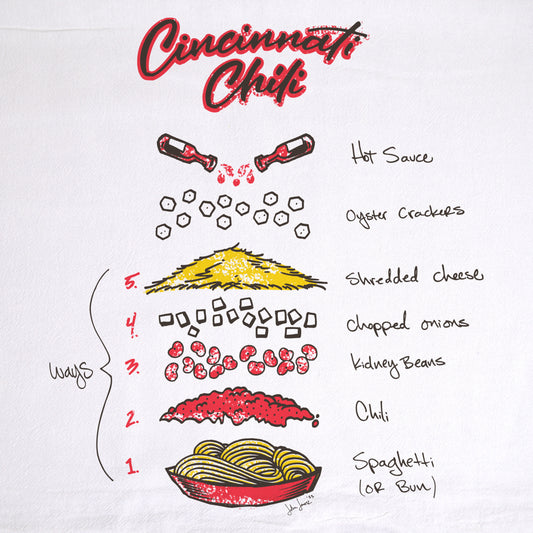 Cincinnati
Chili
Hot Sauce
Oyster Crackers
5. Shredded cheese
4. chopped onions
3. Kidney Beans
ways
2. Chili
1. Spaghetti
(or Bun)